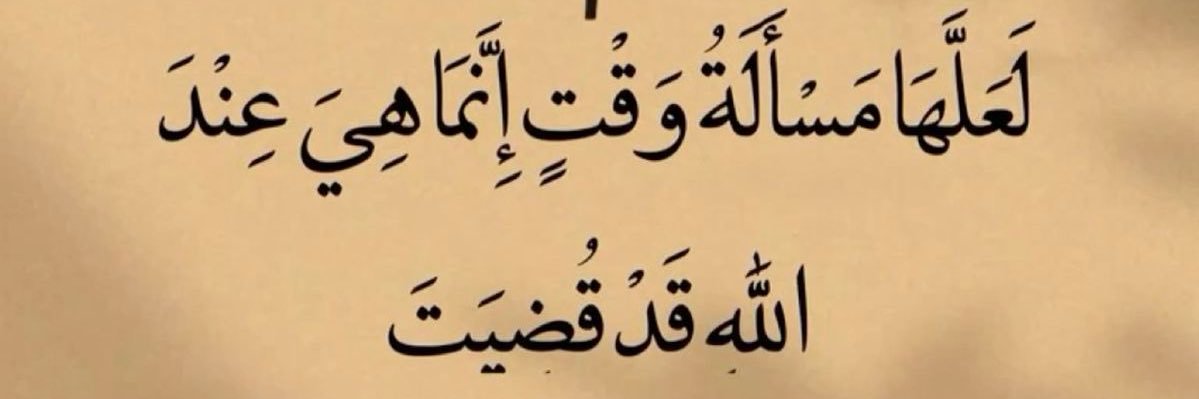 لَعَلَّهَا مَسْأَلَةُ وَقْتٍ إِنَّمَا هِيَ عِنْدَ
اللهِ قَدْ قُضِيَتَ